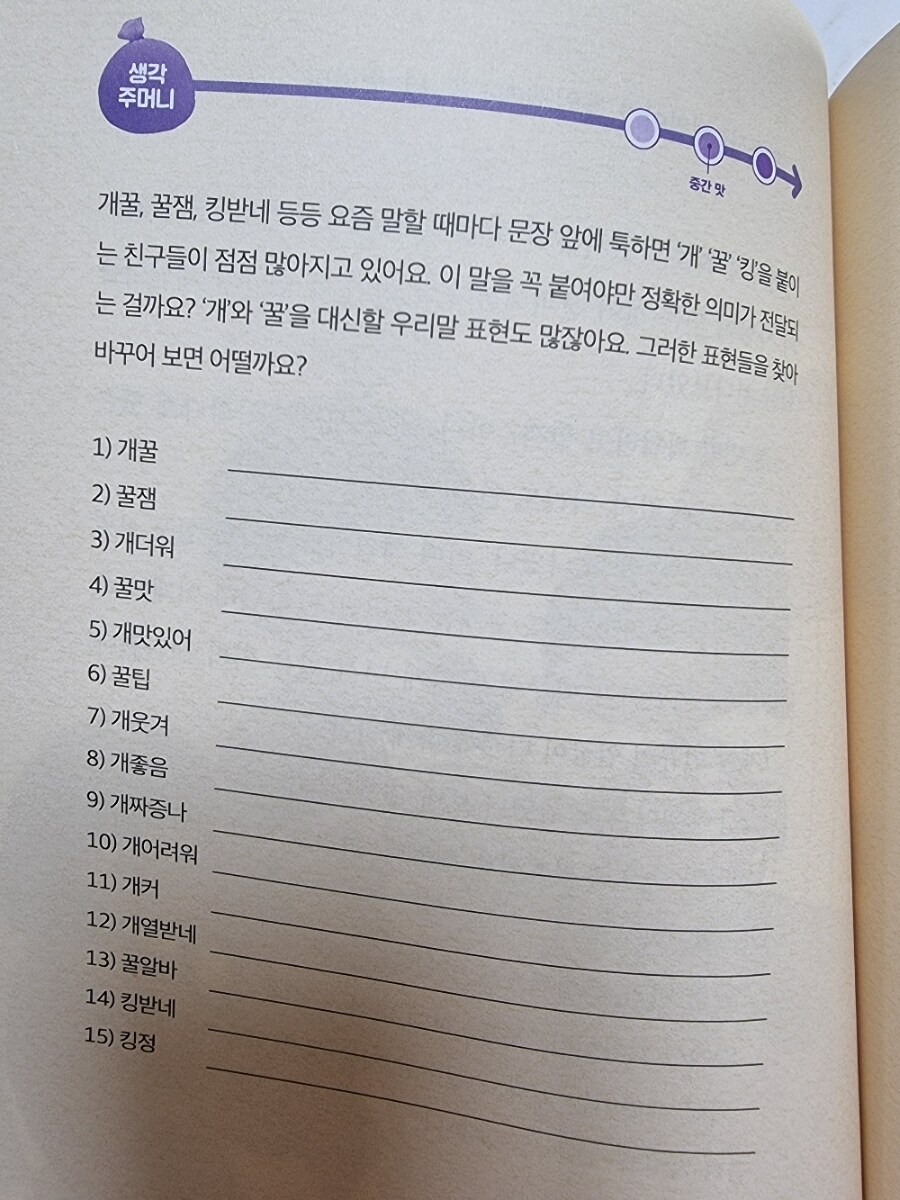 생각
주머니
중간 맛
개꿀, 꿀잼, 킹받네 등등 요즘 말할 때마다 문장 앞에 툭하면 ‘개’ ‘꿀’ ‘킹’을 붙이
는 친구들이 점점 많아지고 있어요. 이 말을 꼭 붙여야만 정확한 의미가 전달되
는 걸까요? ‘개’와 ‘꿀’을 대신할 우리말 표현도 많잖아요. 그러한 표현들을 찾아
바꾸어 보면 어떨까요?
1) 개꿀
2) 꿀잼
3) 개더워
4) 꿀맛
5) 개맛있어
6) 꿀팁
7) 개웃겨
8) 개좋음
9) 개짜증나
10) 개어려워
11) 개커
12) 개열받네
13) 꿀알바
14) 킹받네
15) 킹정